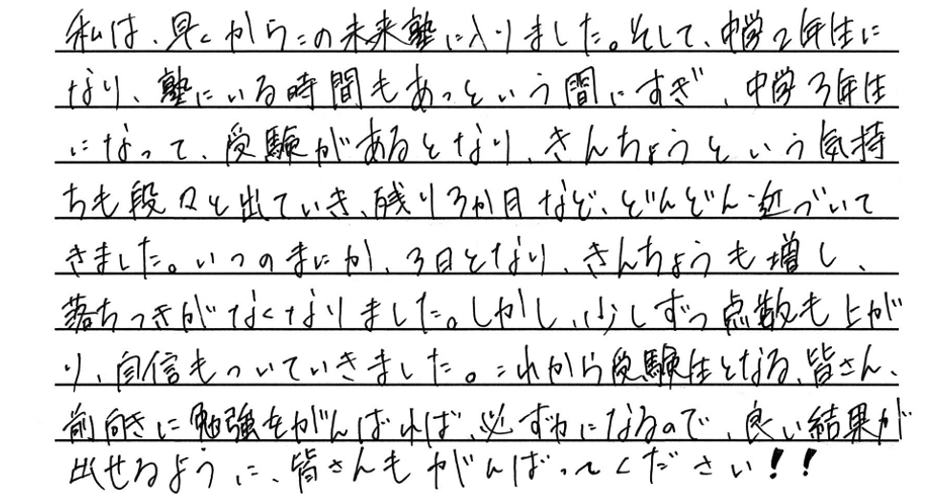 私は、早くからこの未来塾に入りました。そして、中学2年生に
なり、塾にいる時間もあっという間にすぎ、中学3年生
になって、受験があるとなり、きんちょうという気持
ちも段々と出ていき、残り3か月など、どんどん近づいて
きました。いつのまにか、3日となり、きんちょうも増し、
落ちつきがなくなりました。しかし、少しずつ点数も上が
り、自信もついていきました。これから受験生となる、皆さん、
前向きに勉強をがんばれば、必ず力になるので、良い結果が
出せるように、皆さんもがんばってください!!